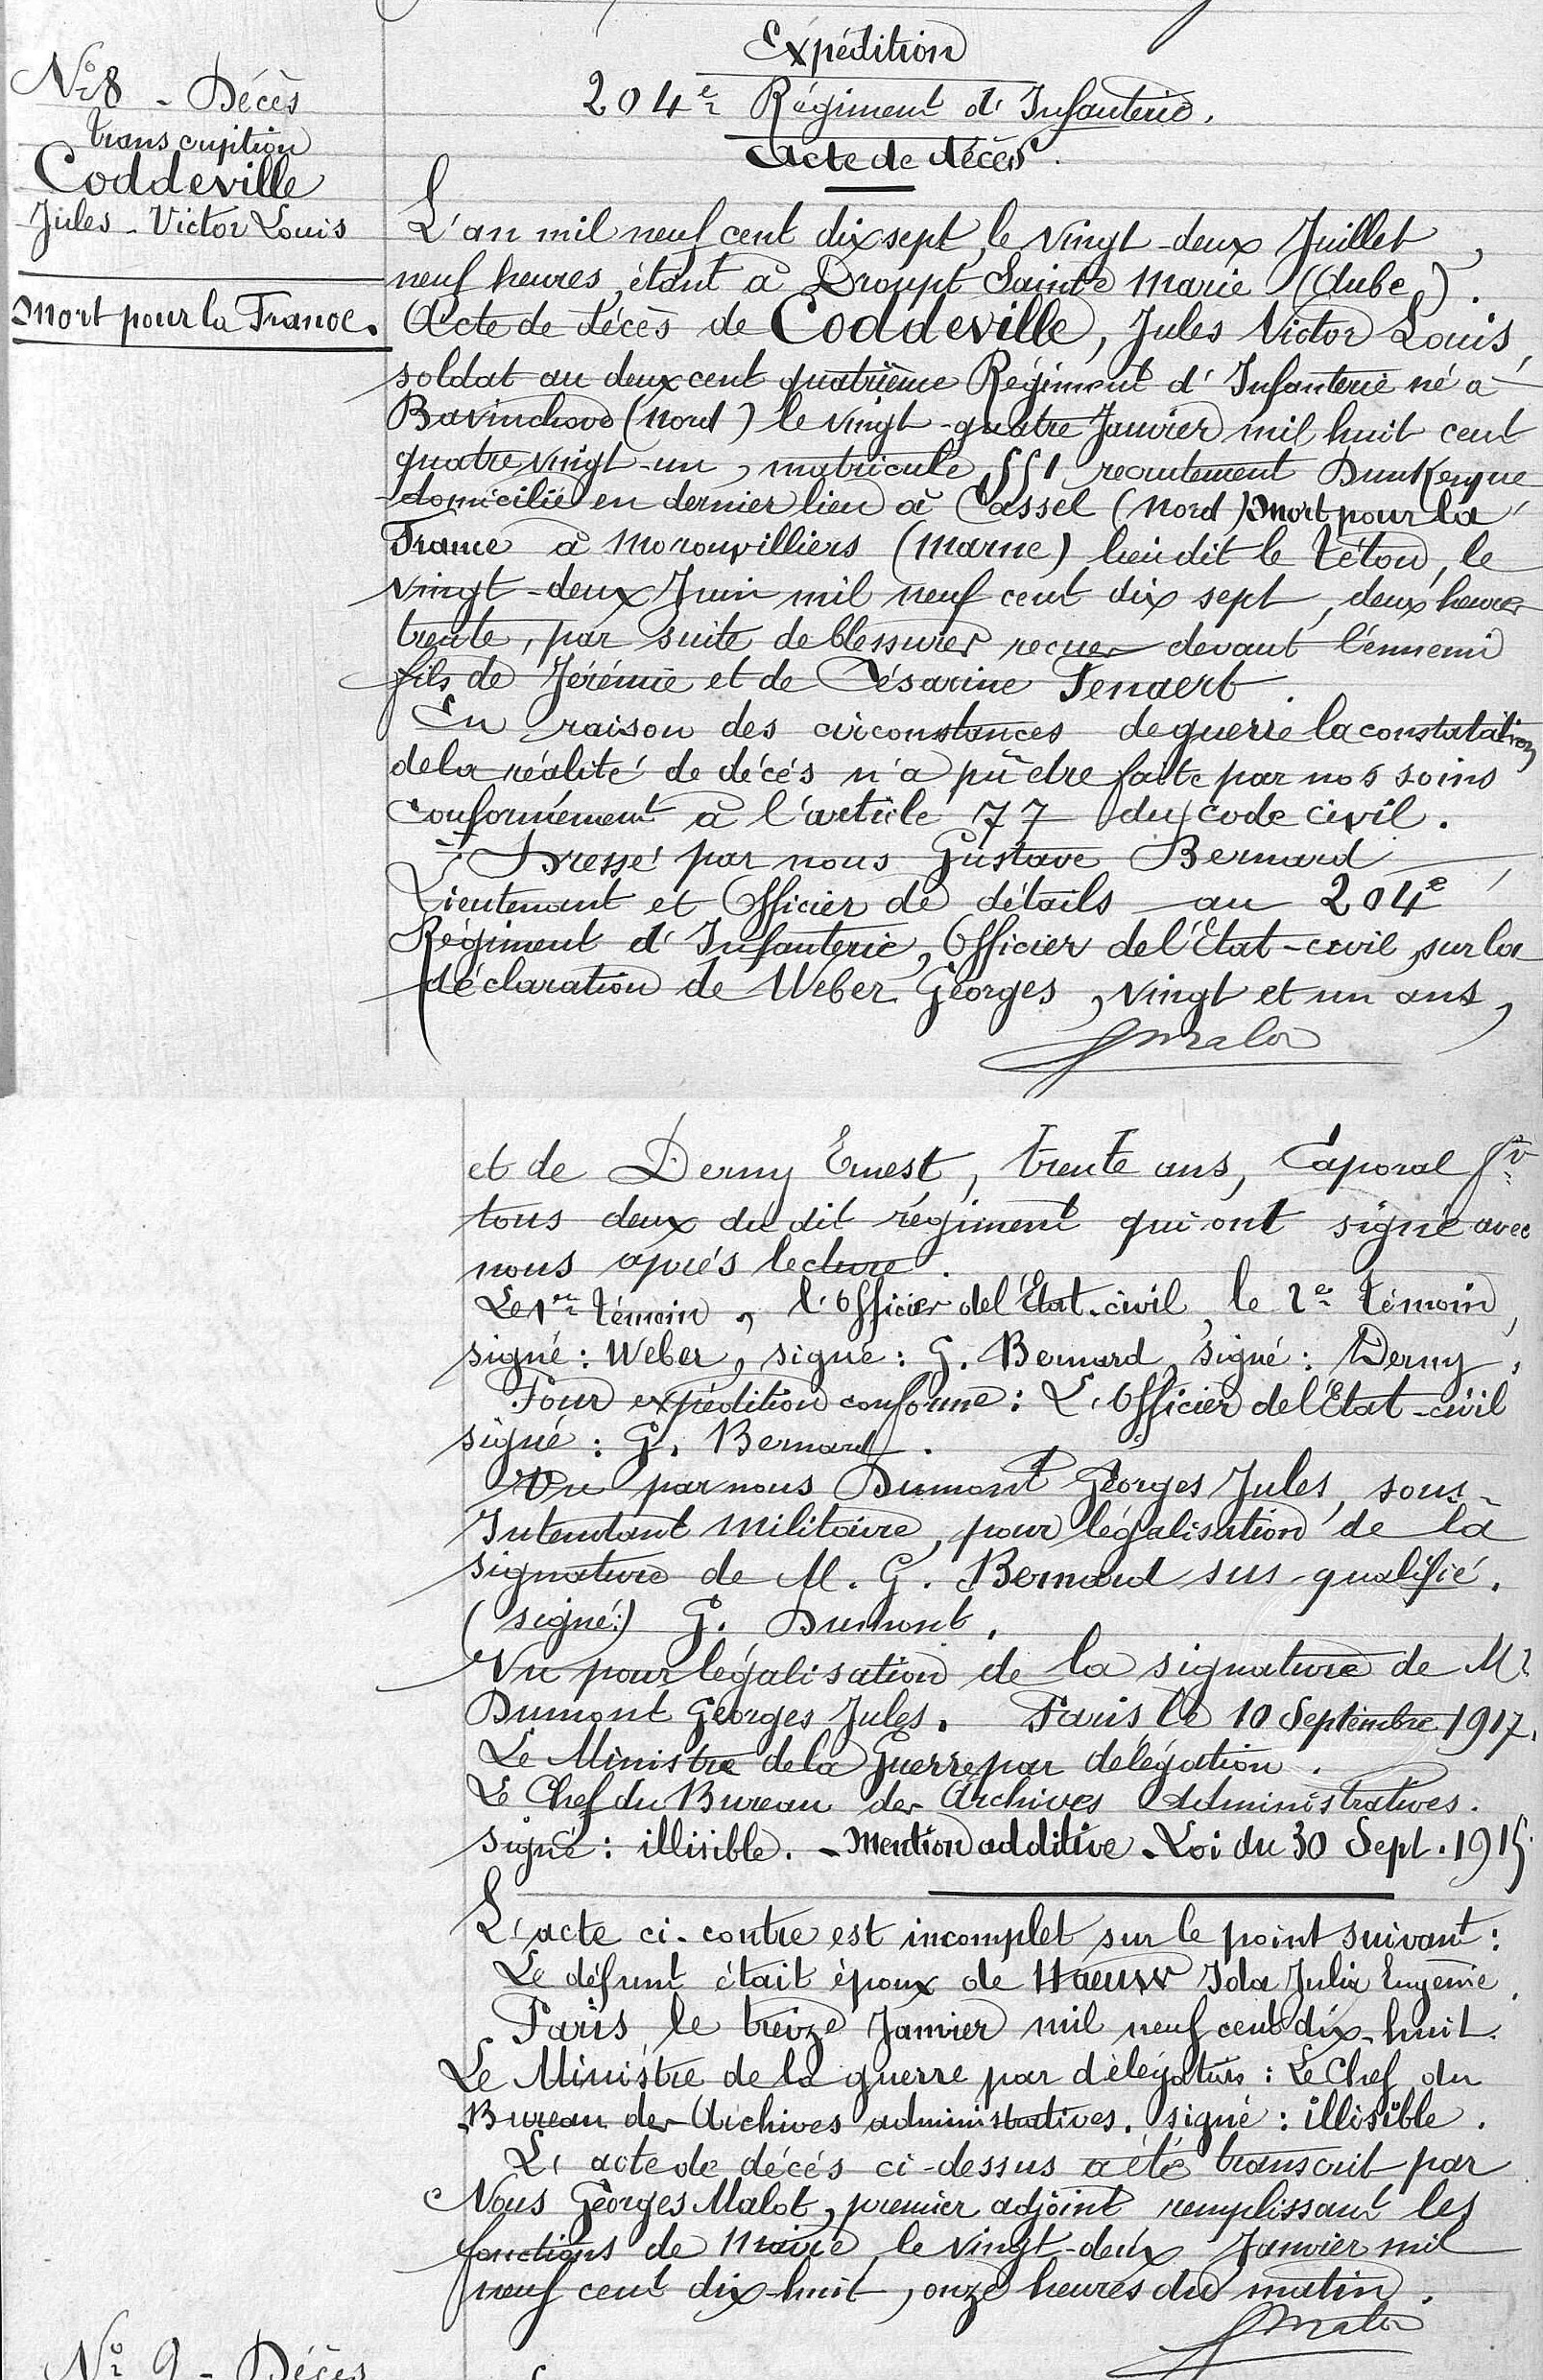 Expédition
204e Régiment d'Infanterie.
Acte de décès.
No 8 - Décès
transcription
Coddeville
Jules - Victor Louis
Mort pour la France.
L'an mil neuf cent dix sept, le vingt-deux Juillet,
neuf heures, étant à Droupt Sainte Marie (Aube).
Acte de décès de Coddeville, Jules Victor Louis,
soldat au deux cent quatrième Régiment d'Infanterie né à
Bavinchove (Nord) le vingt-quatre Janvier mil huit cent
quatre vingt-un, matricule 551 recrutement Dunkerque
domicilié en dernier lieu à Cassel (Nord) Mort pour la
France à Moronvilliers (Marne) lieu dit le Téton, le
vingt-deux Juin mil neuf cent dix sept, deux heures
trente, par suite de blessures reçues devant l'ennemi
fils de Jérémie et de Césarine Fenaert.
En raison des circonstances de guerre la constatation
de la réalité de décès n'a pû être faite par nos soins
conformément à l'article 77 du code civil.
Dressé par nous Gustave Bernard
Lieutenant et Officier de détails au 204e
Régiment d'Infanterie, Officier de l'Etat-civil, sur la
déclaration de Weber Georges, vingt et un ans,
GMalot
et de Derny Ernest, trente ans, Caporal
tous deux du dit régiment qui ont signé avec
nous après lecture.
Le 1er témoin, l'Officier de l'Etat-civil, le 2e témoin,
signé: Weber, signé: G. Bernard, signé: Derny,
Pour expédition conforme: L'Officier de l'Etat-civil
signé: G. Bernard.
Vu par nous Dumont Georges Jules, sous-
Intendant Militaire, pour légalisation de la
signature de M. G. Bernard sus-qualifié.
(signé:) G. Dumont.
Vu pour légalisation de la signature de Mr
Dumont Georges Jules. Paris le 10 Septembre 1917.
Le Ministre de la Guerre par délégation.
Le Chef du Bureau des Archives Administratives.
signé: illisible. - Mention additive - Loi du 30 Sept. 1915
L'acte ci-contre est incomplet sur le point suivant:
Le défunt était époux de Haeuw Ida Julia Eugénie.
Paris le treize Janvier mil neuf cent dix-huit.
Le Ministre de la guerre par délégation: Le Chef du
Bureau des Archives administratives. signé: illisible.
L'acte de décés ci-dessus a été transcrit par
Nous Georges Malot, premier adjoint remplissant les
fonctions de Maire, le vingt-deux Janvier mil
neuf cent dix-huit, onze heures du matin.
GMalot
No 9 - Décès